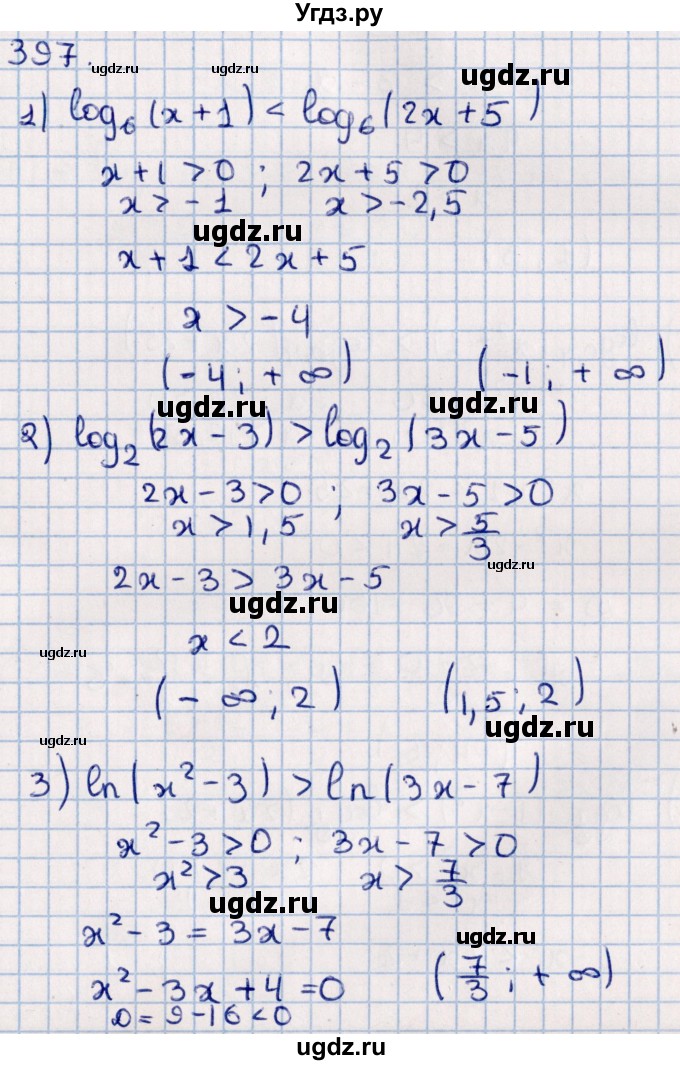 Угдз.ру
397.
ugdz.ru ugdz.ru ugdz.ru
1) log₆(x+1) < log₆(2x+5)
x+1 > 0 ; 2x+5 > 0
x > -1 x > -2,5
ugdz.ru
x+1 < 2x+5
x > -4
(-4; +∞) (-1; +∞)
ugdz.ru ugdz.ru
2) log₂(2x-3) > log₂(3x-5)
2x-3>0 ; 3x-5>0
x > 1,5 x > 5/3
ugdz.ru
2x-3 > 3x-5
ugdz.ru
x < 2
ugdz.ru
(-∞; 2) (1,5; 2)
ugdz.ru
ugdz.ru
3) ln(x²-3) > ln(3x-7)
x²-3>0 ; 3x-7>0
x²>3 x > 7/3
ugdz.ru
x²-3 = 3x-7
ugdz.ru
x²-3x+4=0 (7/3; +∞)
D=9-16<0
ugdz.ru
ugdz.ru